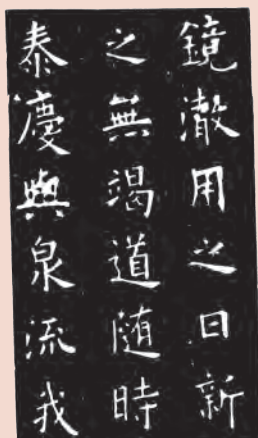 鏡澈用之日新
之無竭道随時
泰慶與泉流我